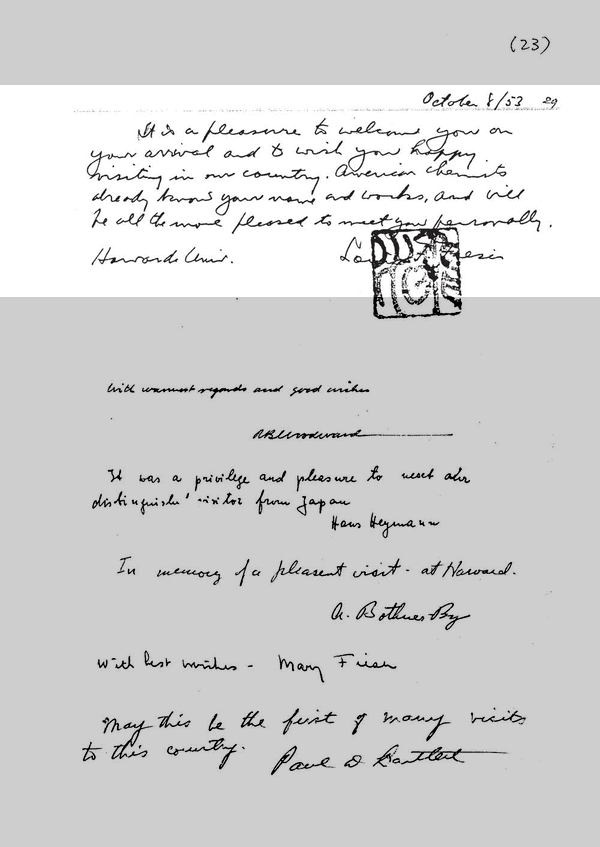 (23)
October 8/53 29
It is a pleasure to welcome you on
your arrival and to wish you happy
visiting in our country. American chemists
already know your name and works, and will
be all the more pleased to meet you personally.
Harvard Univ. Fieser
With warmest regards and good wishes
RBWoodward
It was a privilege and pleasure to meet our
distinguish' visitor from Japan
Hans Heymann
In memory of a pleasant visit - at Harvard.
A. Bothner-By
With best wishes - Mary Fieser
May this be the first of many visits
to this country. Paul D Bartlett